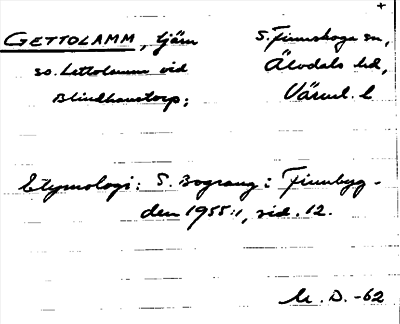 +
GETTOLAMM, tjärn S. Finnskoga sn,
so. Lettolamm vid Älvdals hd,
Blindhanstorp; Värml. l
Etymologi: S. Bograng i Finnbyg-
den 1955:1, sid. 12.
M. D. -62